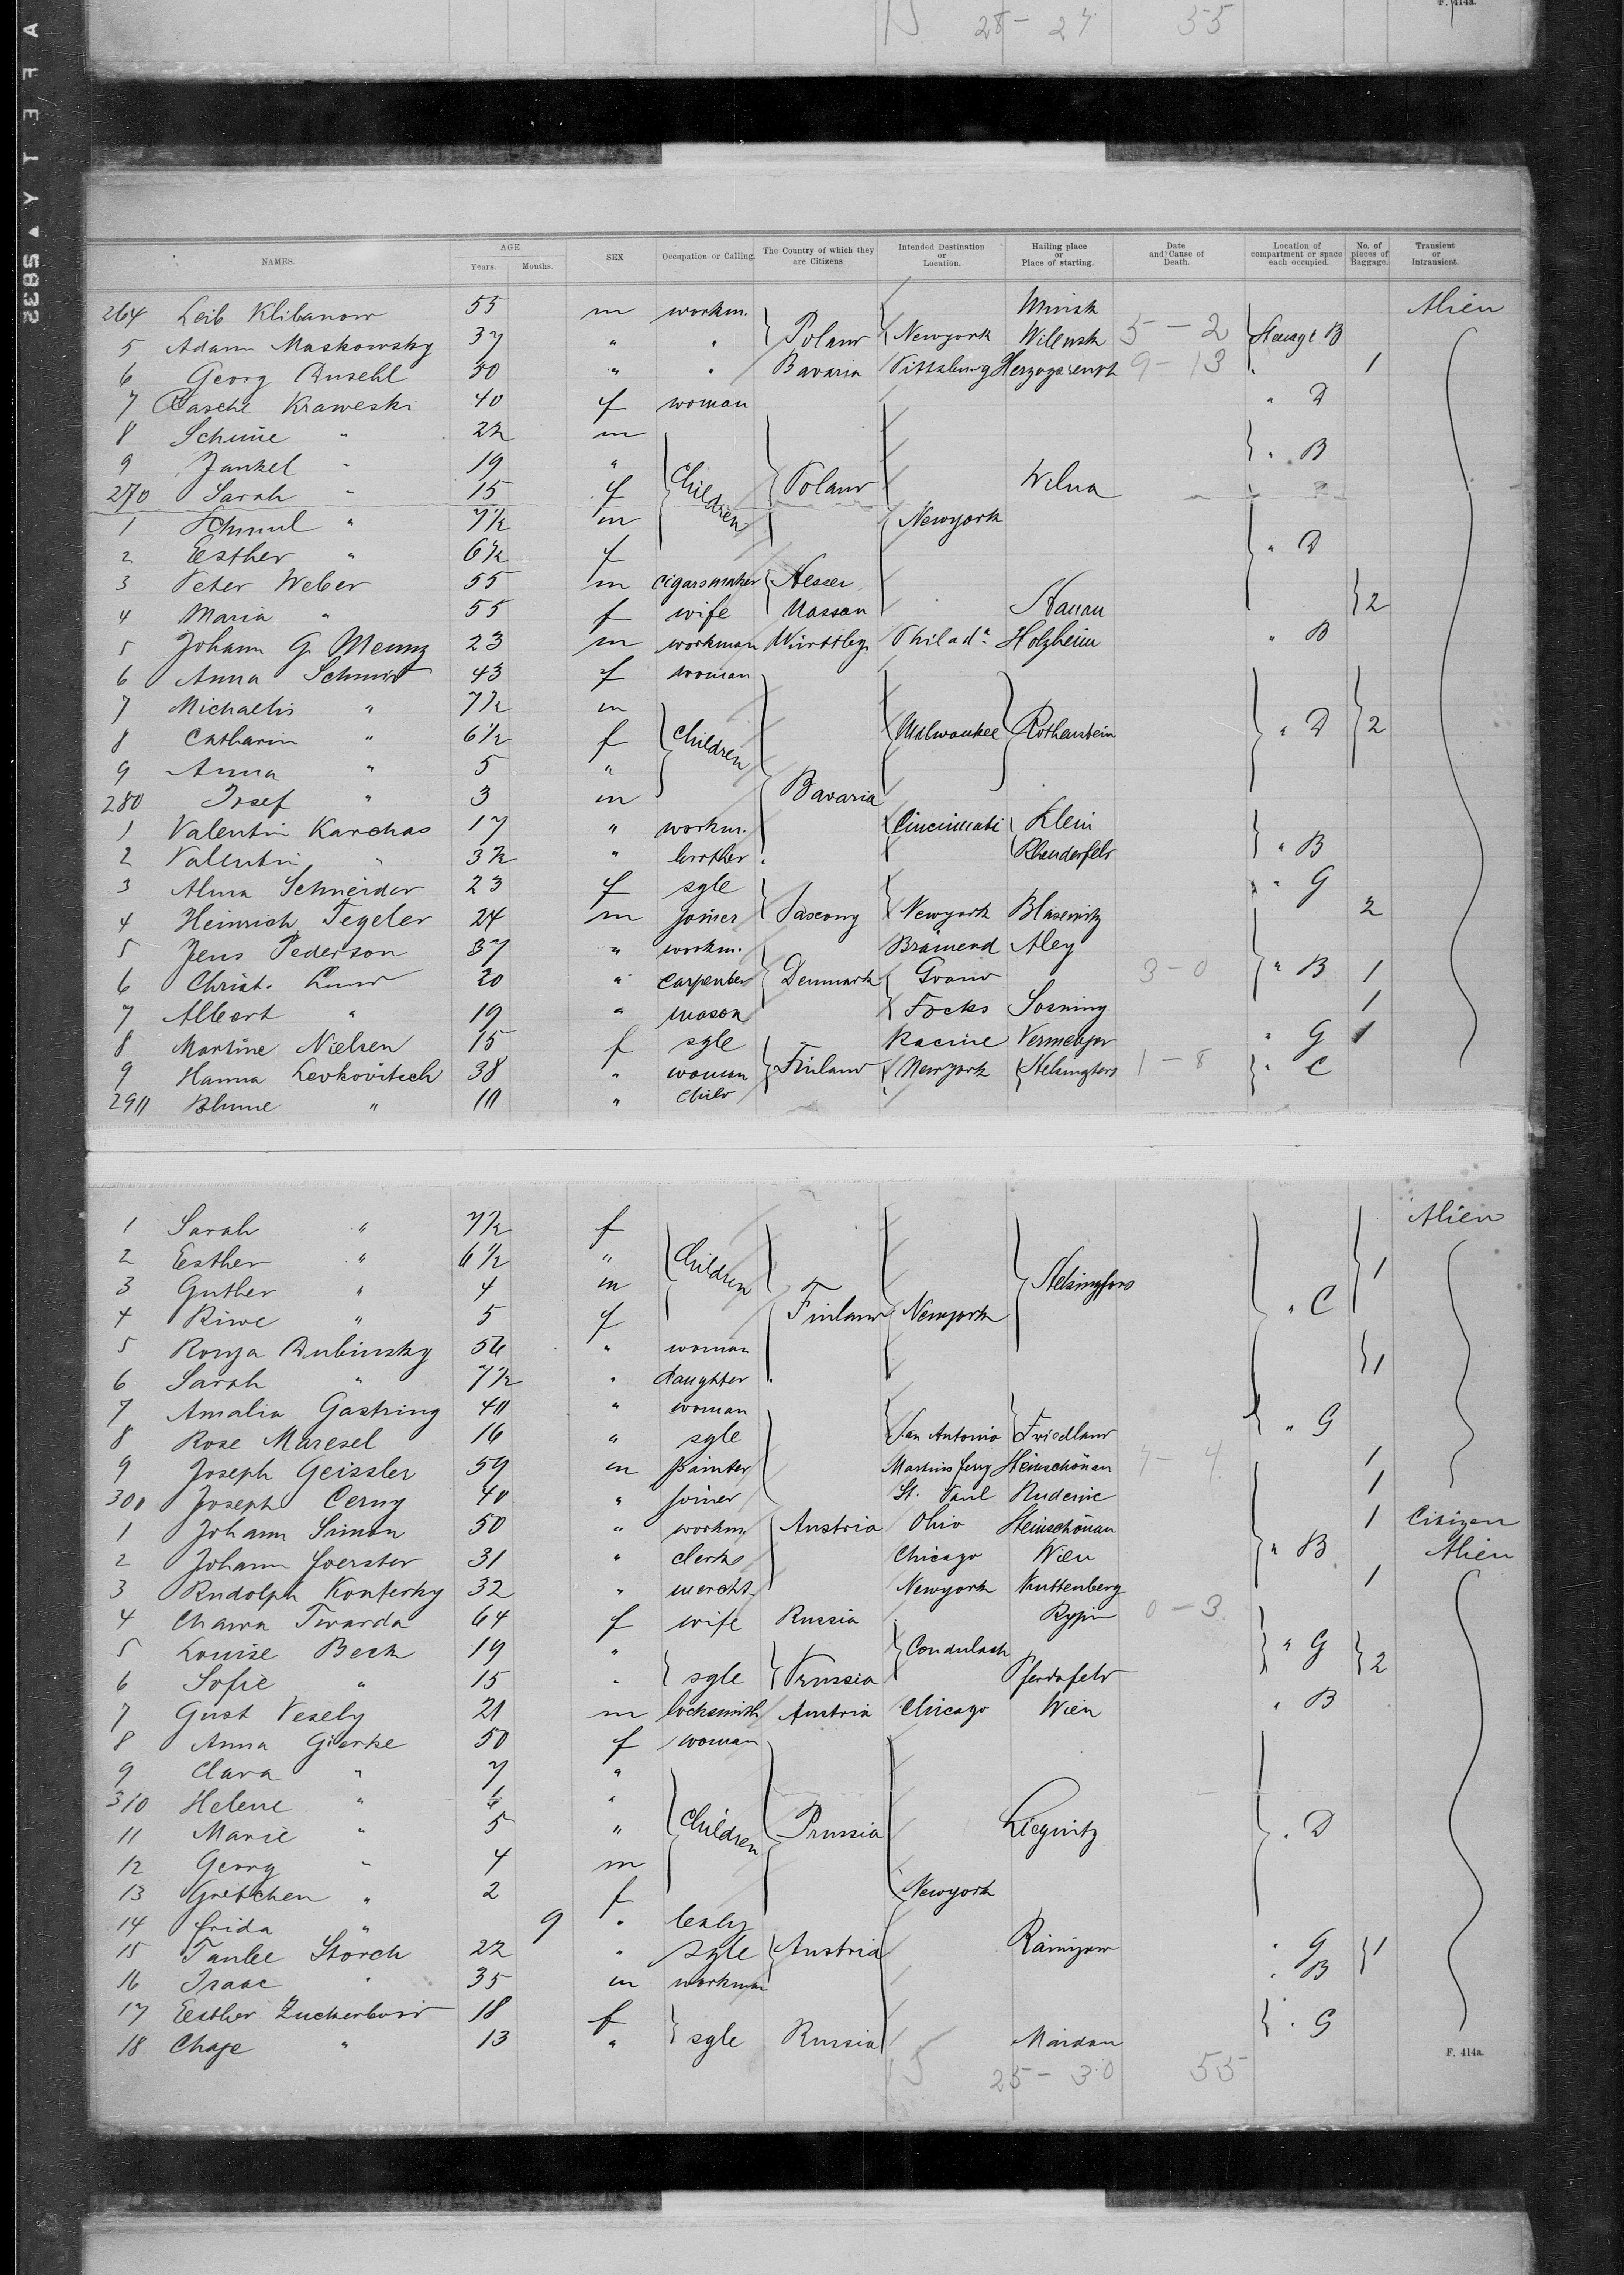 28 - 27 55
F. 414a.
SAFETY ▲ 5832
NAMES. AGE Years. Months. SEX Occupation or Calling. The Country of which they are Citizens Intended Destination or Location. Hailing place or Place of starting. Date and Cause of Death. Location of compartment or space each occupied. No. of pieces of Baggage. Transient or Intransient.
264 Leib Klibanow 55 m workm. Minsk Alien
5 Adam Maskowsky 37 " " Poland Newyork Wilensk 5 - 2 Steerage B
6 Georg Buschl 30 " " Bavaria Pittsburg 9 - 13 " 1
7 Pasche Kraweski 40 f woman " D
8 Schmie " 22 m " B
9 Jankel " 19 " Children Poland Wilna
270 Sarah " 15 f
1 Schmul " 7½ m Newyork
2 Esther " 6½ f " D
3 Peter Weber 55 m cigarsmaker Hessen
4 Maria " 55 f wife Nassau Hanau 2
5 Johann G. 23 m workman Württbg Philada. Holzheim " B
6 Anna Schmid 43 f woman
7 Michaelis " 7½ m
8 Catharin " 6½ f Children Milwaukee Rothenstein " D 2
9 Anna " 5 "
280 Josef " 3 m Bavaria
1 Valentin Karchas 17 " workm. Cincinnati Klein
2 Valentin " 3½ " brother " B
3 Alma Schneider 23 f sgle " G
4 Heinrich Tegeler 24 m joiner Saxony Newyork Blasewitz 2
5 Jens Pederson 37 " workm. Brainerd Aley
6 Christ. Lund 20 " carpenter Denmark Grand 3 - 0 " B 1
7 Albert " 19 " mason Focks 1
8 Martine Nielsen 15 f sgle Racine " G 1
9 Hanna Levkovitsch 38 " woman Finland Newyork Helsingfors 1 - 8 " C
290 Blume " 10 " child
1 Sarah " 7½ f Alien
2 Esther " 6½ " Children 1
3 Guther " 4 m Helsingfors
4 Riwe " 5 f Finland Newyork " C
5 Ronja Dubinsky 56 " woman 1
6 Sarah " 7½ " daughter
7 Amalia Gastring 40 " woman
8 Rose Maresel 16 " sgle San Antonio Friedland " G
9 Joseph Geissler 59 m painter Martins ferry Steinschönau 1
300 Joseph Cerny 40 " joiner St. Paul 1
1 Johann Simon 50 " workm. Austria Ohio Steinschönau 1 Citizen
2 Johann Foerster 31 " clerk Chicago Wien " B Alien
3 Rudolph Konferky 32 " mercht. Newyork Kuttenberg 1
4 Chawa Twarda 64 f wife Russia Rypin 0 - 3
5 Louise Beck 19 " " G 2
6 Sofie " 15 " sgle Prussia Pferdsfeld
7 Gust Vesely 21 m locksmith Austria Chicago Wien " B
8 Anna Gierke 50 f woman
9 Clara " 7 "
310 Helene " 6 "
11 Marie " 5 " Children Prussia Liegnitz " D
12 Georg " 4 m
13 Gretchen " 2 f Newyork
14 Frida " 9 " baby
15 Taube Storch 22 " sgle Austria " G 1
16 Isaac " 35 m workman " B
17 Esther 18 f " G
18 Chaje " 13 " sgle Russia
25 - 30 55
F. 414a.